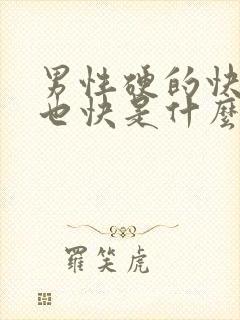 男性硬的快
也快是什麼
羅笑虎